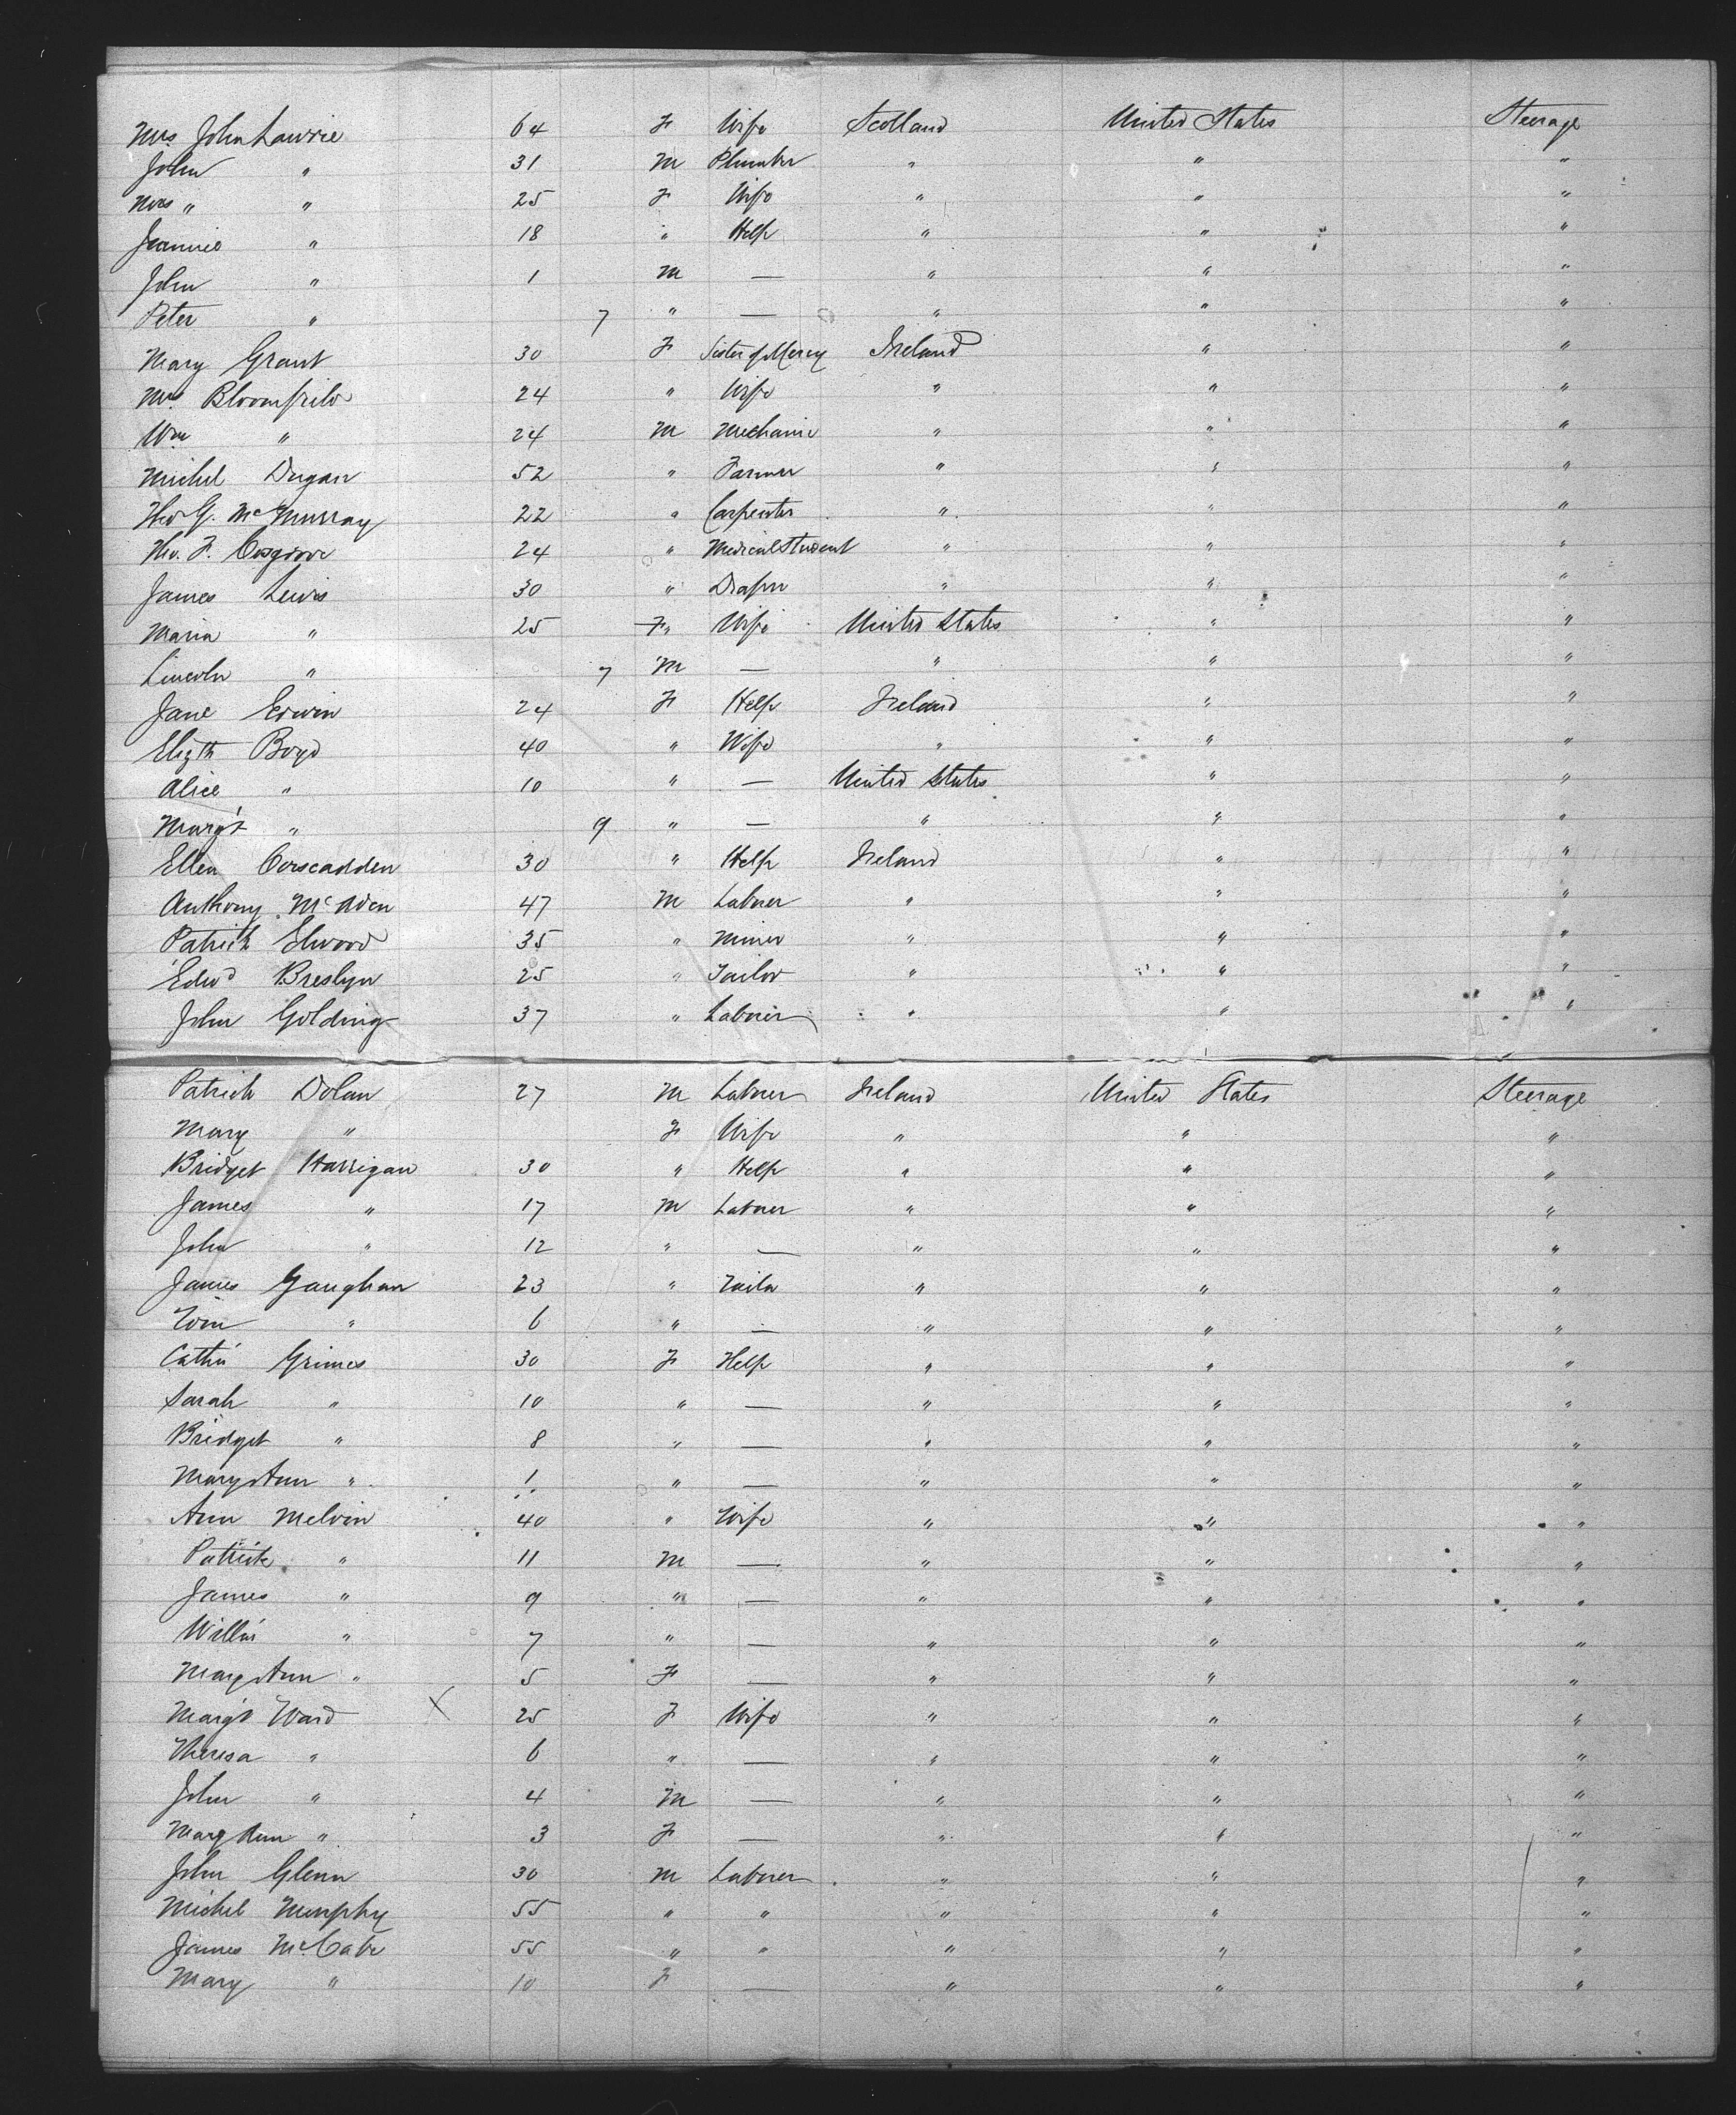 Mrs John Lawrie 64 F Wife Scotland United States Steerage
John " 31 M Plumber " " "
Mrs " " 25 F Wife " " "
Jeannie " 18 " Help " " "
John " 1 M — " " "
Peter " 7 " — " " "
Mary Grant 30 F Sister of Mercy Ireland " "
Mrs Bloomfield 24 " Wife " " "
Wm " 24 M Mechanic " " "
Michel Dugan 52 " Farmer " " "
G. McMurray 22 " Carpenter " " "
F. Cosgrove 24 " Medical Student " " "
James Lewis 30 " Draper " " "
Maria " 25 F " Wife United States " "
Lincoln " 7 M — " " "
Jane Erwin 24 F Help Ireland " "
Elizth Boyd 40 " Wife " " "
Alice " 10 " — United States " "
Margt " 9 " — " " "
Ellen Corscadden 30 " Help Ireland " "
Anthony 47 M Laborer " " "
Patrick Elwood 35 " Miner " " "
Edwd Breslyn 25 " Tailor " " "
John Golding 37 " Laborer " " "
Patrick Dolan 27 M Laborer Ireland United States Steerage
Mary " F Wife " " "
Bridget Harrigan 30 " Help " " "
James " 17 M Laborer " " "
John " 12 " — " " "
James Gaughan 23 " " " "
" 6 " — " " "
Grimes 30 F Help " " "
Sarah " 10 " — " " "
Bridget " 8 " — " " "
Mary Ann " 1 " — " " "
Ann Melvin 40 " Wife " " "
Patrick " 11 M — " " "
James " 9 " — " " "
" 7 " — " " "
Mary Ann " 5 F — " " "
Margt Ward X 25 F Wife " " "
Theresa " 6 " — " " "
John " 4 M — " " "
Mary Ann " 3 F — " " "
John Glenn 30 M Laborer " " "
Michel Murphy 55 " " " " "
James McCabe 55 " " " " "
Mary " 10 F — " " "